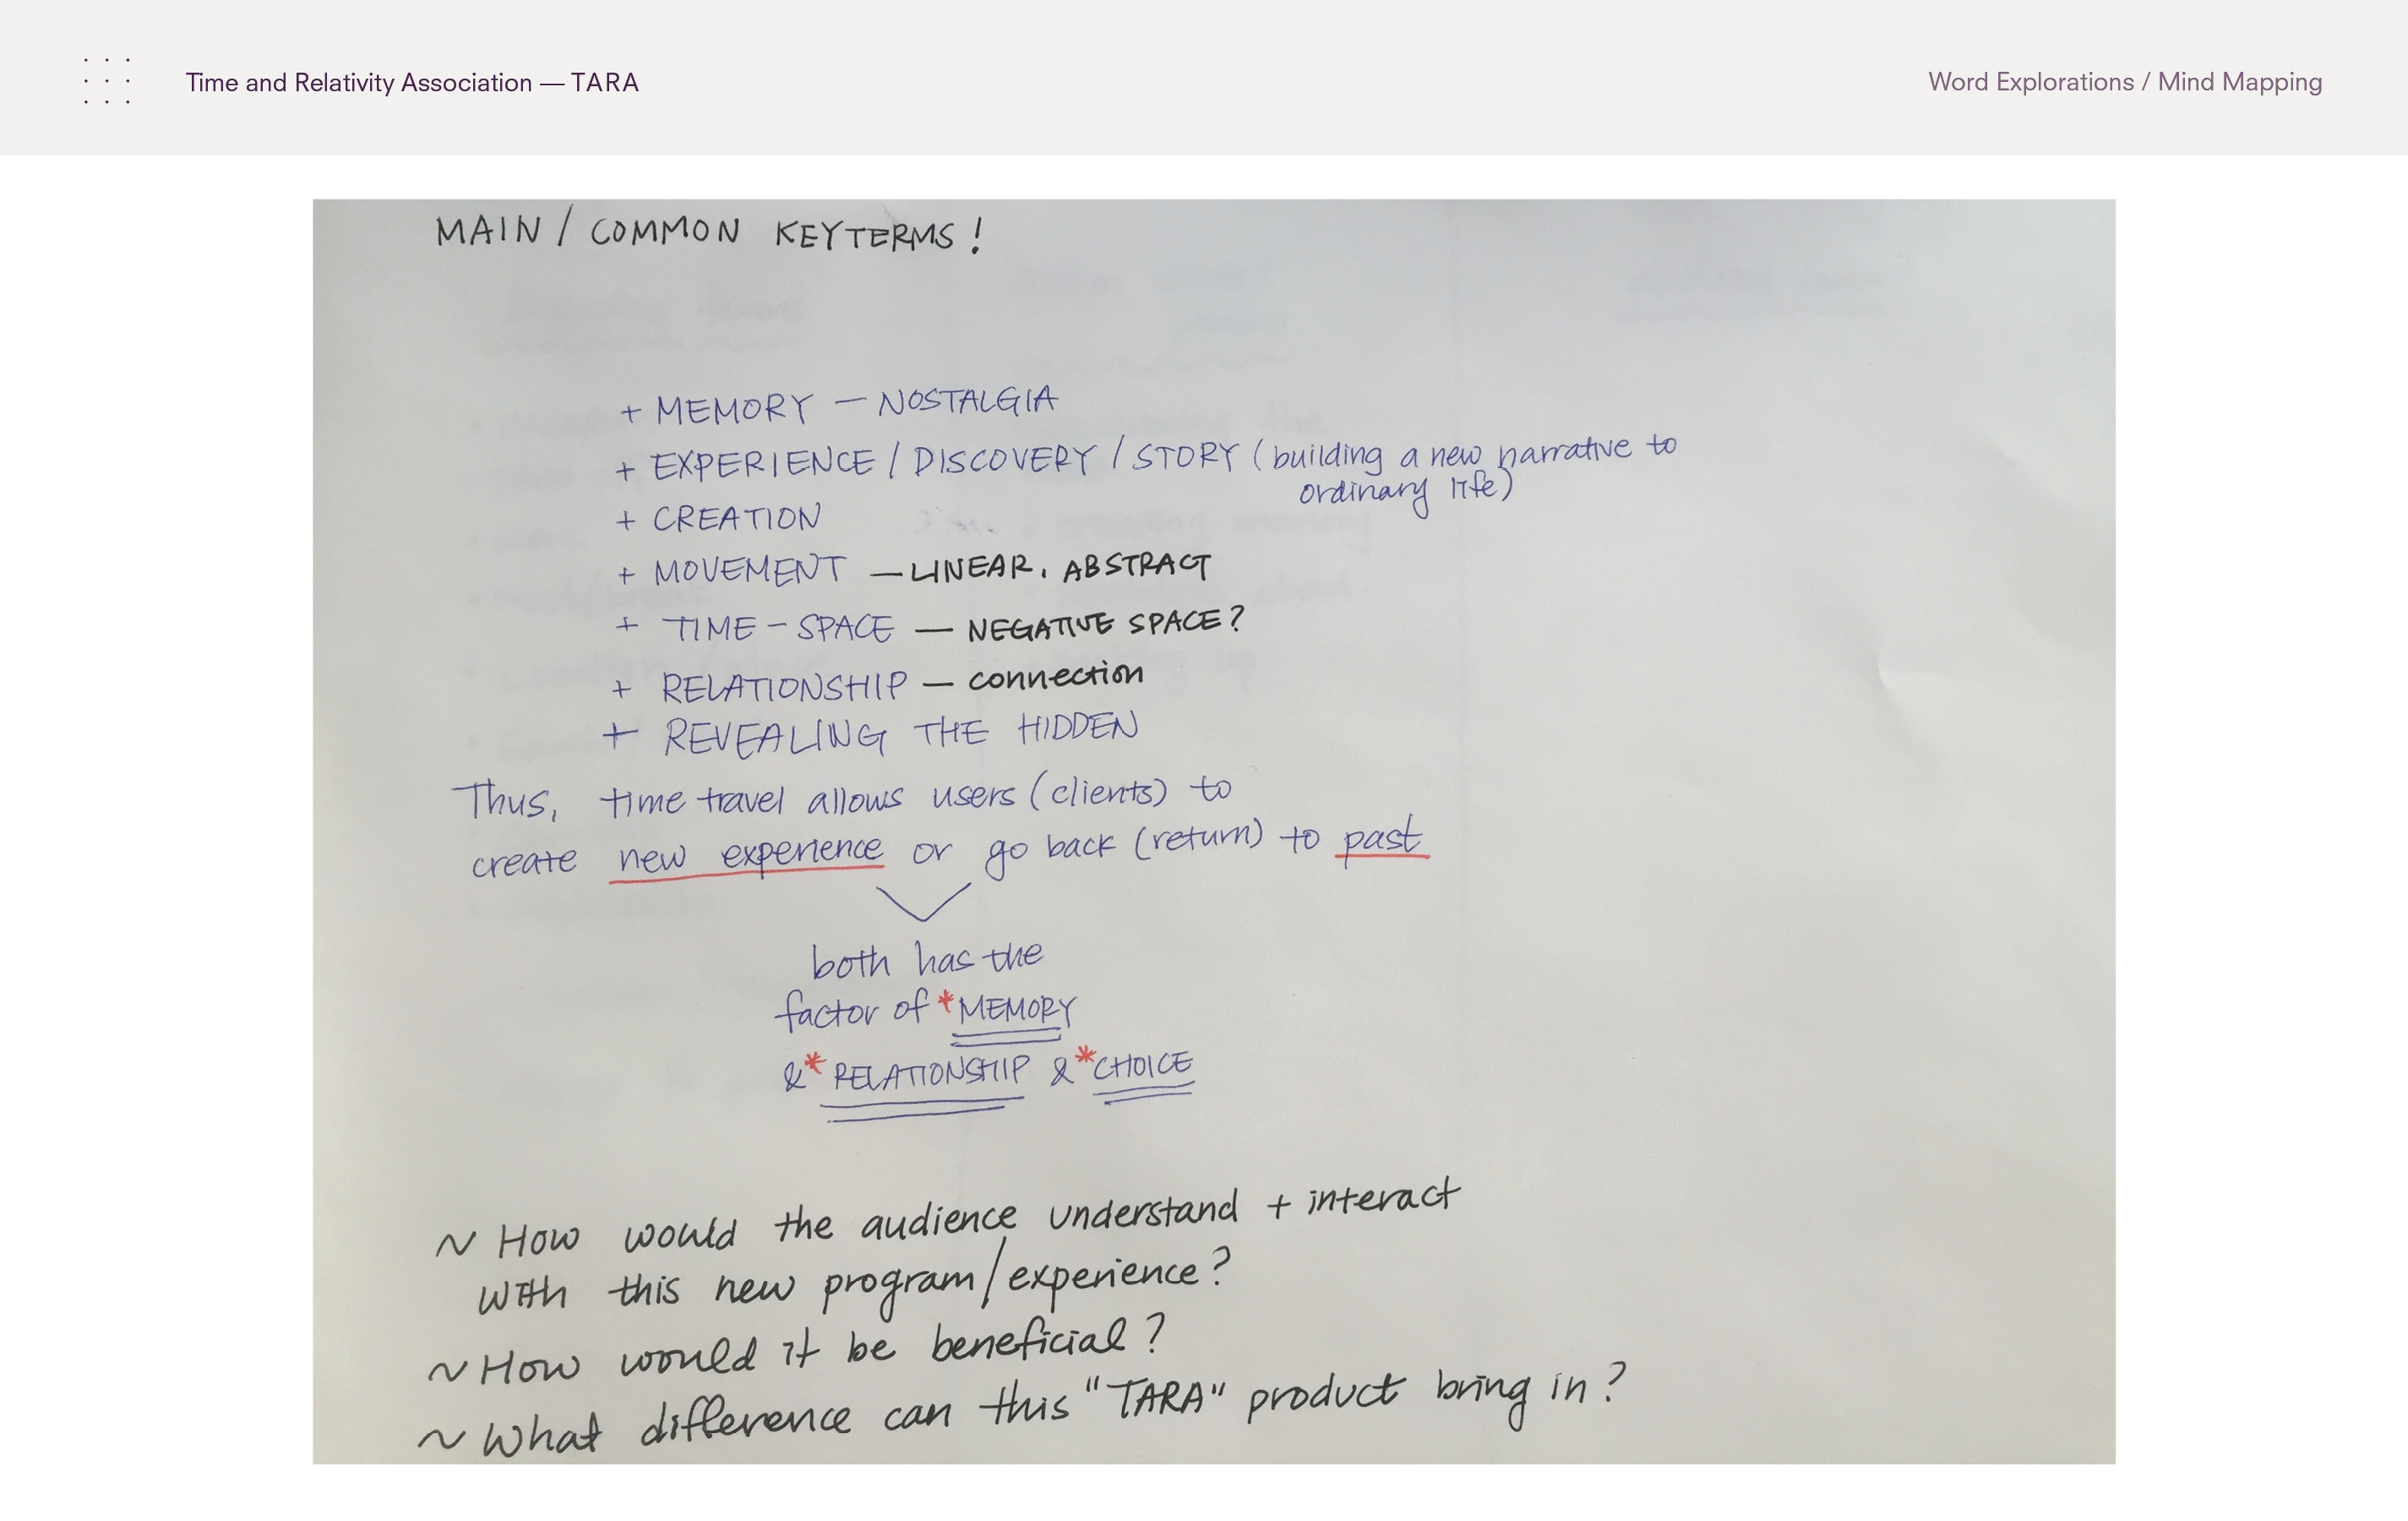 Time and Relativity Association — TARA
Word Explorations / Mind Mapping
MAIN / COMMON KEYTERMS!
+ MEMORY — NOSTALGIA
+ EXPERIENCE / DISCOVERY / STORY (building a new narrative to
ordinary life)
+ CREATION
+ MOVEMENT — LINEAR, ABSTRACT
+ TIME - SPACE — NEGATIVE SPACE?
+ RELATIONSHIP — connection
+ REVEALING THE HIDDEN
Thus, time travel allows users (clients) to
create new experience or go back (return) to past
both has the
factor of *MEMORY
& *RELATIONSHIP & *CHOICE
~ How would the audience understand + interact
with this new program/experience?
~ How would it be beneficial?
~ What difference can this "TARA" product bring in?